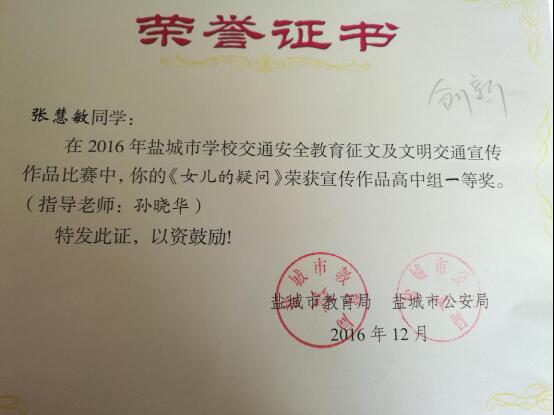 荣誉证书
创新
张慧敏同学：
在2016年盐城市学校交通安全教育征文及文明交通宣传
作品比赛中，你的《女儿的疑问》荣获宣传作品高中组一等奖。
（指导老师：孙晓华）
特发此证，以资鼓励!
盐城市教育局 盐城市公安局
2016年12月
盐城市教育局
盐城市公安局